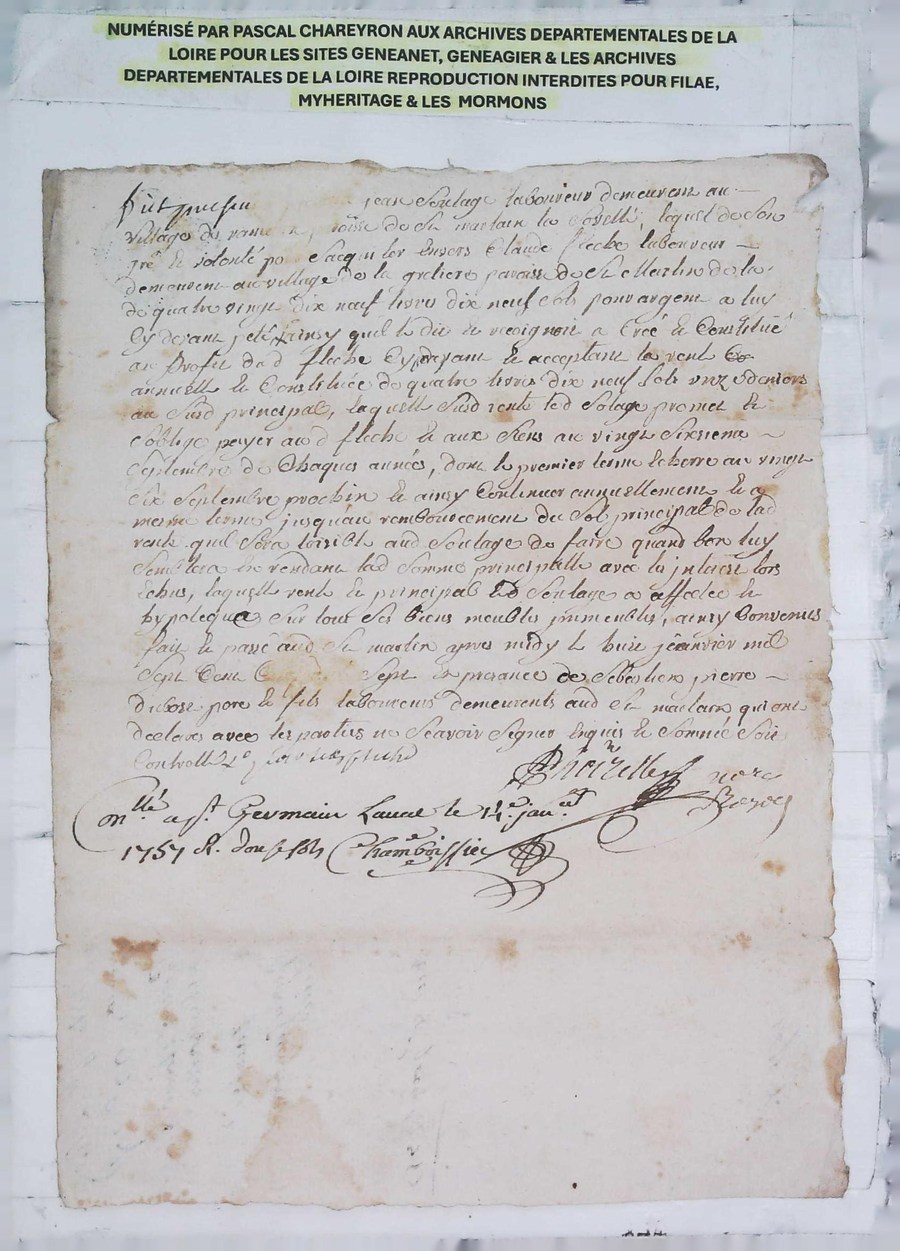 NUMÉRISÉ PAR PASCAL CHAREYRON AUX ARCHIVES DEPARTEMENTALES DE LA
LOIRE POUR LES SITES GENEANET, GENEAGIER & LES ARCHIVES
DEPARTEMENTALES DE LA LOIRE REPRODUCTION INTERDITES POUR FILAE,
MYHERITAGE & LES MORMONS
fut present jean Soulage laboureur demeurent au
village de de St martain la Sovetté, lequel de Son
gré et volonté po Sacquiter envers Claude fleche laboureur
demeurent au village de la paroisse de St Martin de la
de quatre vingt dix neuf livres dix neuf sols pour argent a luy
Cy devant ainsy quil le dit et recoignoit a Créé et Constitué
au Profit dud fleche Cy et acceptant la rente
annuelle et Constituée de quatre livres dix neuf sols unze deniers
au Susd principal, laquelle Susd rente led Solage promet et
Soblige payer aud fleche et aux Siens au vingt Sixsieme
Septembre de Chaques année, dont le premier terme Echerra au vingt
Six Septembre prochin et ainsy Continuer annuellement et a
meme terme jusquau rembourcement du Sol principal de lad
rente quil Sera loisible aud Soulage de faire quand bon luy
Semblera en rendant lad Somme principalle avec les jnterest lors
Echus, laquelle rente et principal led Soulage a affectée et
hypotequée Sur tous Ses biens meubles jmmeubles, ainsy Convenus
fait et passé aud St martin apres midy le huit jeanvier mil
Sept Cent Sept en presance de Sebastien pierre
Dubost pere et fils laboureurs demeurents aud St martain qui ont
declares avec les parties ne Scavoir Signer Enquis et Sommé Soit
Controllé
nore
Royal
Cn.llé a St. Germain Laval le 14e. janer
1757 R. douse sols Chamboissier